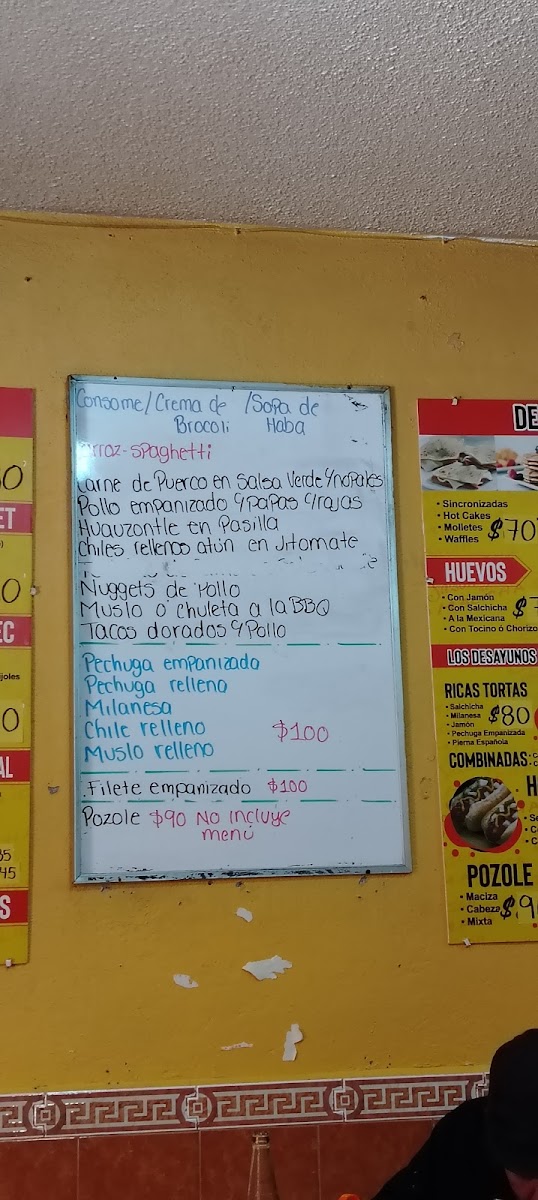 Consome/Crema de /Sopa de
Brocoli Haba
arroz-spaghetti
Carne de Puerco en Salsa Verde c/nopales
Pollo empanizado c/papas c/rajas
Huauzontle en Pasilla
chiles rellenos atún en Jitomate
Nuggets de Pollo
Muslo o chuleta a la BBQ
Tacos dorados c/Pollo
Pechuga empanizada
Pechuga rellena
Milanesa
Chile relleno $100
Muslo relleno
Filete empanizado $100
Pozole $90 No incluye
menú
DE
• Sincronizadas
• Hot Cakes
• Molletes $70
• Waffles
HUEVOS
• Con Jamón
• Con Salchicha
• A la Mexicana
• Con Tocino ó Chorizo
LOS DESAYUNOS
RICAS TORTAS
• Salchicha
• Milanesa $80
• Jamón
• Pechuga Empanizada
• Pierna Española
COMBINADAS:
H
POZOLE
• Maciza
• Cabeza $9
• Mixta
0
ET
0
EC
joles
0
AL
35
45
S